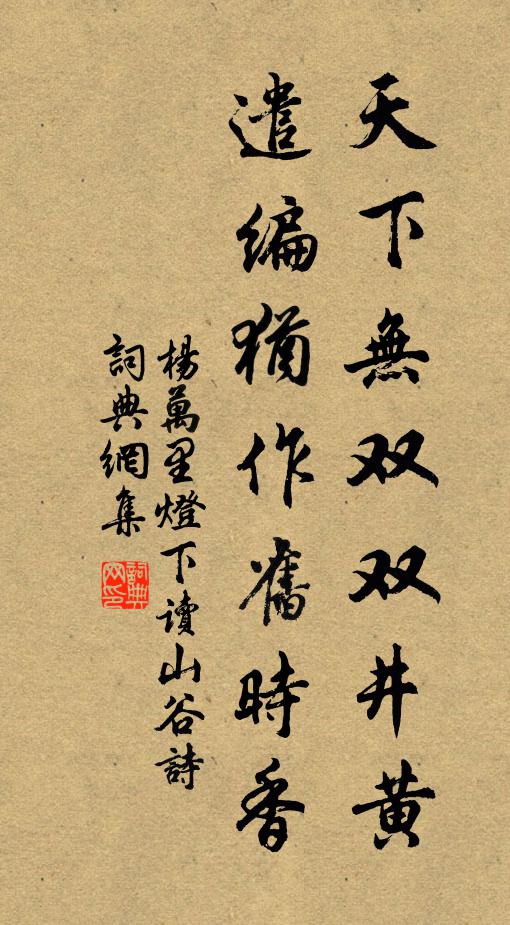 天下無双双井黄
遣編猶作舊時香
楊萬里燈下讀山谷詩
詞典網集
詞典网印